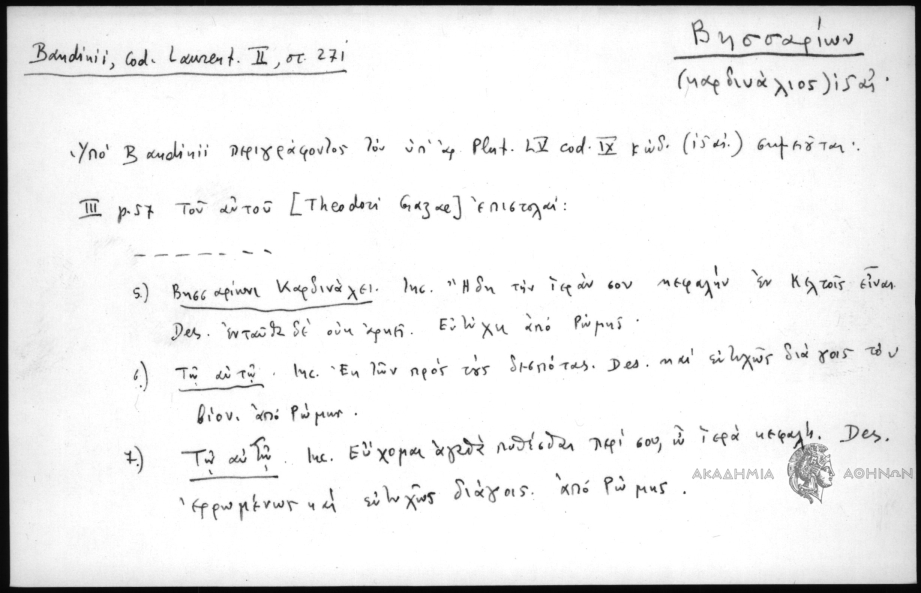 Bandinii, Cod. Laurent. II, στ. 271
Βησσαρίων
(καρδινάλιος) ἰδαί.
Ὑπό Bandinii περιγράφοντος τόν ὑπ' ἀρ. Plut. LV cod. IX κώδ. (ἰδαί.) σημειοῦται:
III p. 57 Τοῦ αὐτοῦ [Theodori Gazae] ἐπιστολαί:
5.) Βησσαρίωνι Καρδινάλει. Inc. Ἤδη τήν ἱεράν σου κεφαλήν ἐν Κελτοῖς εἶναι
Des. ἐνταῦθα δέ οὐκ ἀρκεῖ. Εὐτύχει ἀπό Ῥώμης.
6.) Τῷ αὐτῷ. Inc. Ἐκ τῶν πρός τούς δεσπότας. Des. καί εὐτυχῶς διάγοις τόν
βίον. ἀπό Ῥώμης.
7.) Τῷ αὐτῷ. Inc. Εὔχομαι ἀγαθά πυθέσθαι περί σου, ὦ ἱερά κεφαλή. Des.
ἐρρωμένως καί εὐτυχῶς διάγοις. ἀπό Ῥώμης.
ΑΚΑΔΗΜΙΑ ΑΘΗΝΩΝ